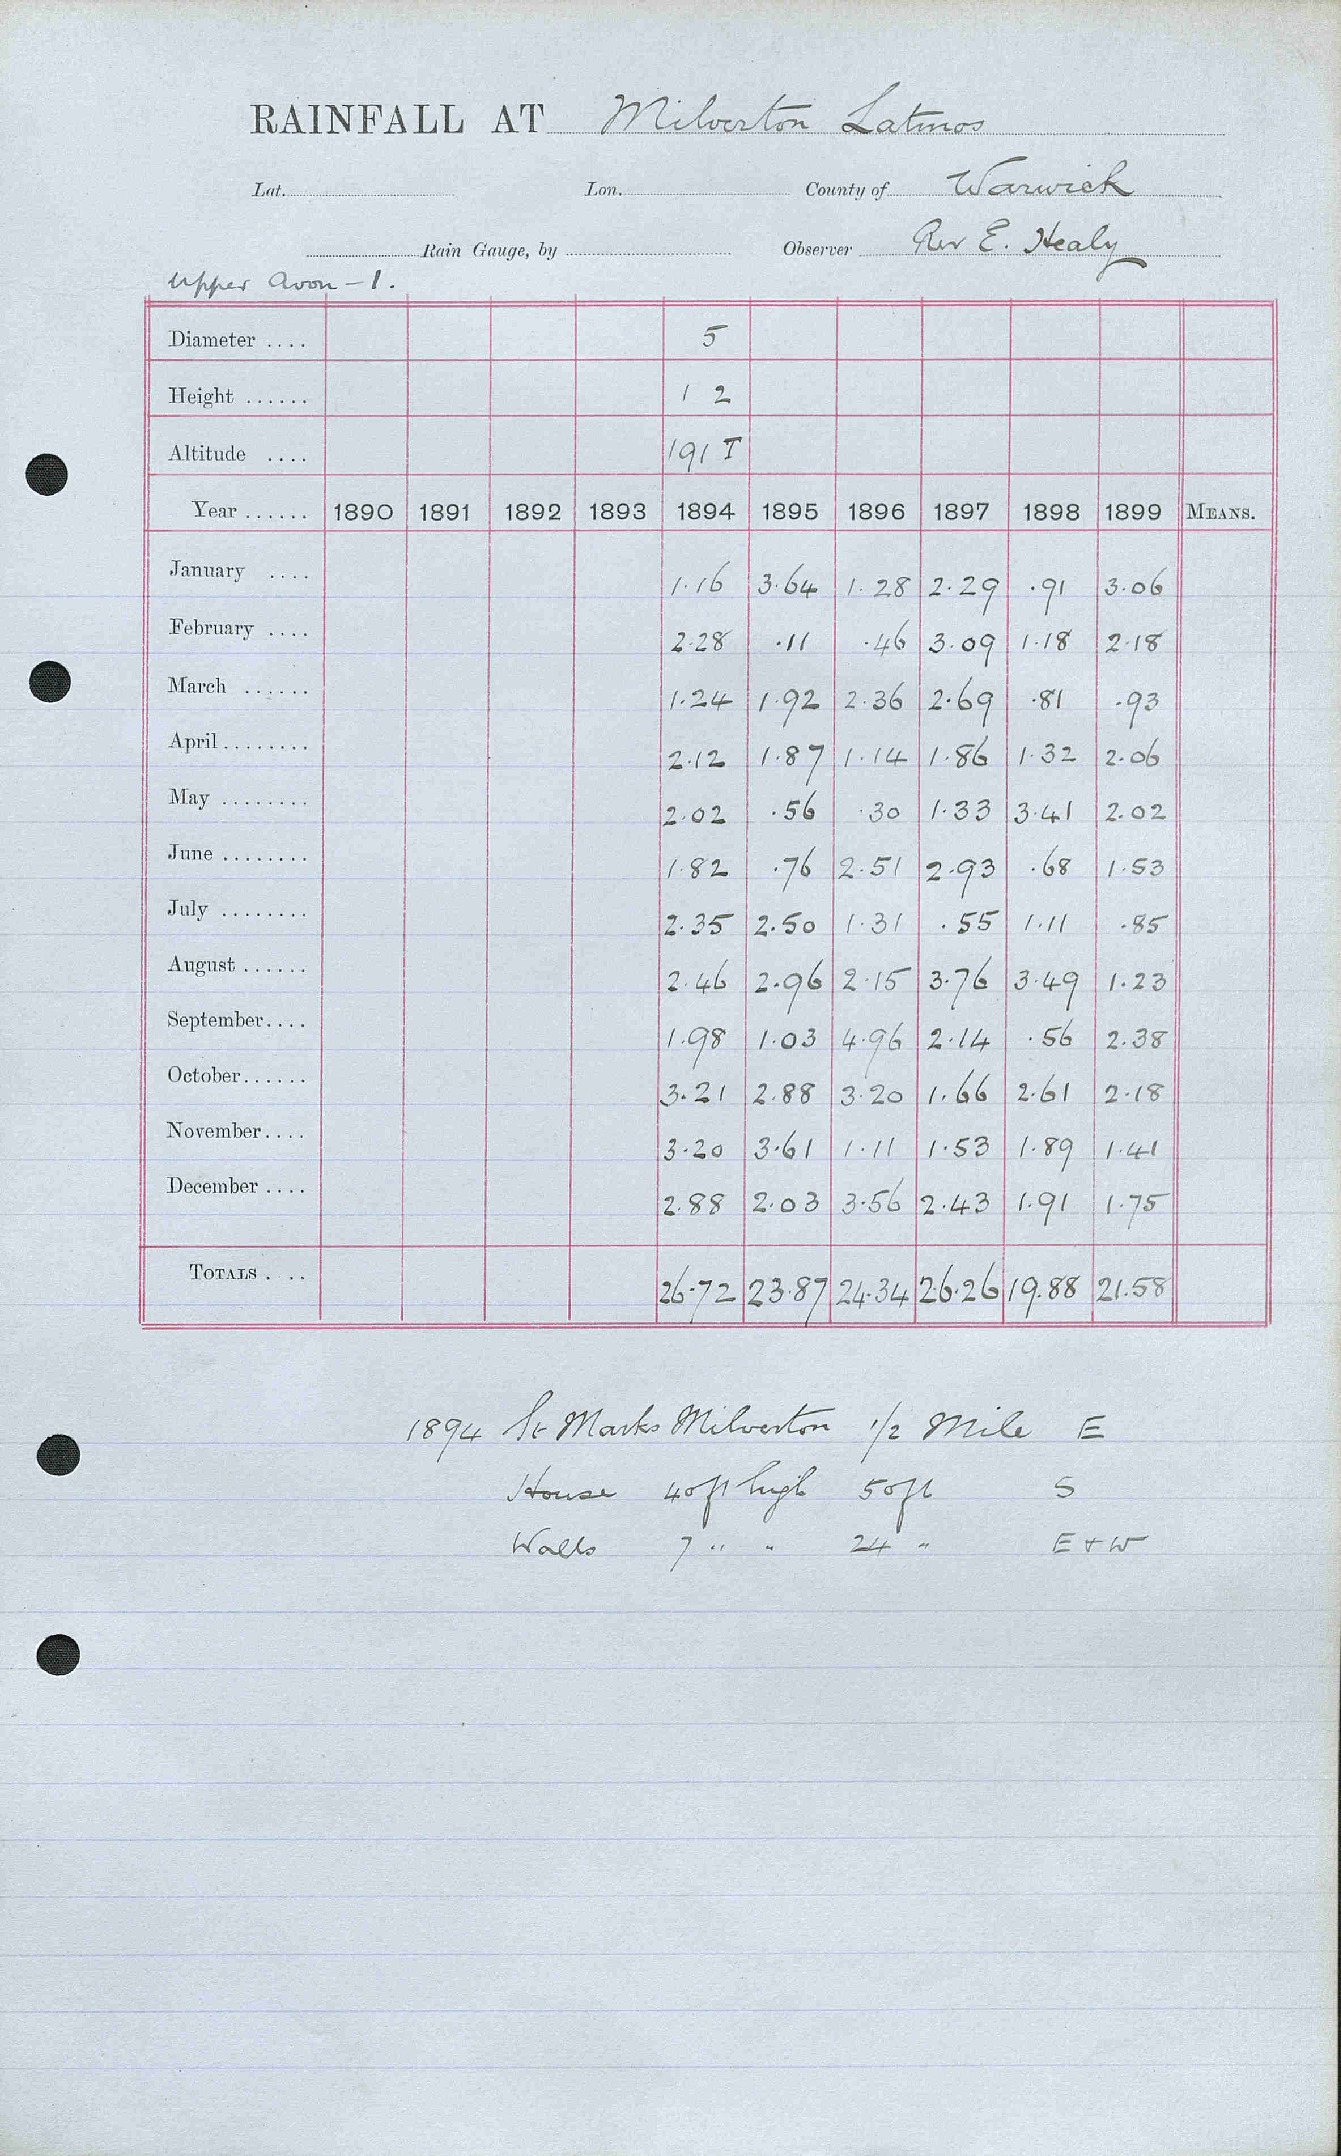 RAINFALL AT Milverton Latmos
Lat. Lon. County of Warwick
Rain Gauge, by Observer Rev E. Healy
Upper Avon - 1.
Diameter .... 5
Height ...... 1 2
Altitude .... 191 T
Year ...... 1890 1891 1892 1893 1894 1895 1896 1897 1898 1899 MEANS.
January .... 1.16 3.64 1.28 2.29 .91 3.06
February .... 2.28 .11 .46 3.09 1.18 2.18
March ...... 1.24 1.92 2.36 2.69 .81 .93
April ........ 2.12 1.87 1.14 1.86 1.32 2.06
May ........ 2.02 .56 .30 1.33 3.41 2.02
June ........ 1.82 .76 2.51 2.93 .68 1.53
July ........ 2.35 2.50 1.31 .55 1.11 .85
August ...... 2.46 2.96 2.15 3.76 3.49 1.23
September.... 1.98 1.03 4.96 2.14 .56 2.38
October...... 3.21 2.88 3.20 1.66 2.61 2.18
November.... 3.20 3.61 1.11 1.53 1.89 1.41
December .... 2.88 2.03 3.56 2.43 1.91 1.75
TOTALS . .. 26.72 23.87 24.34 26.26 19.88 21.58
1894 St Marks Milverton 1/2 Mile E
House 40ft high 50ft S
Walls 7 " " 24 " E + W